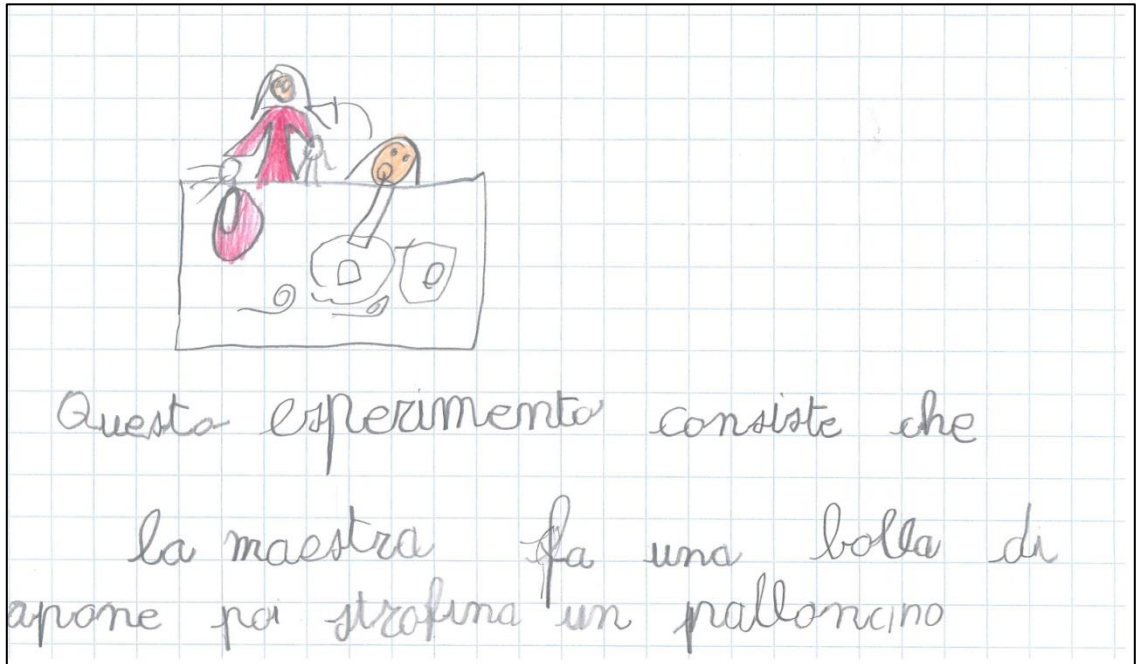 Questo esperimento consiste che
la maestra fa una bolla di
apone poi strofina un palloncino